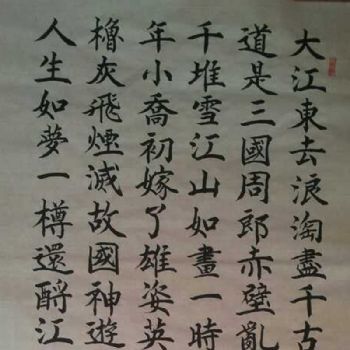 大江東去浪淘盡千古
道是三國周郎赤壁亂
千堆雪江山如畫一時
年小喬初嫁了雄姿英
櫓灰飛煙滅故國神遊
人生如夢一樽還酹江